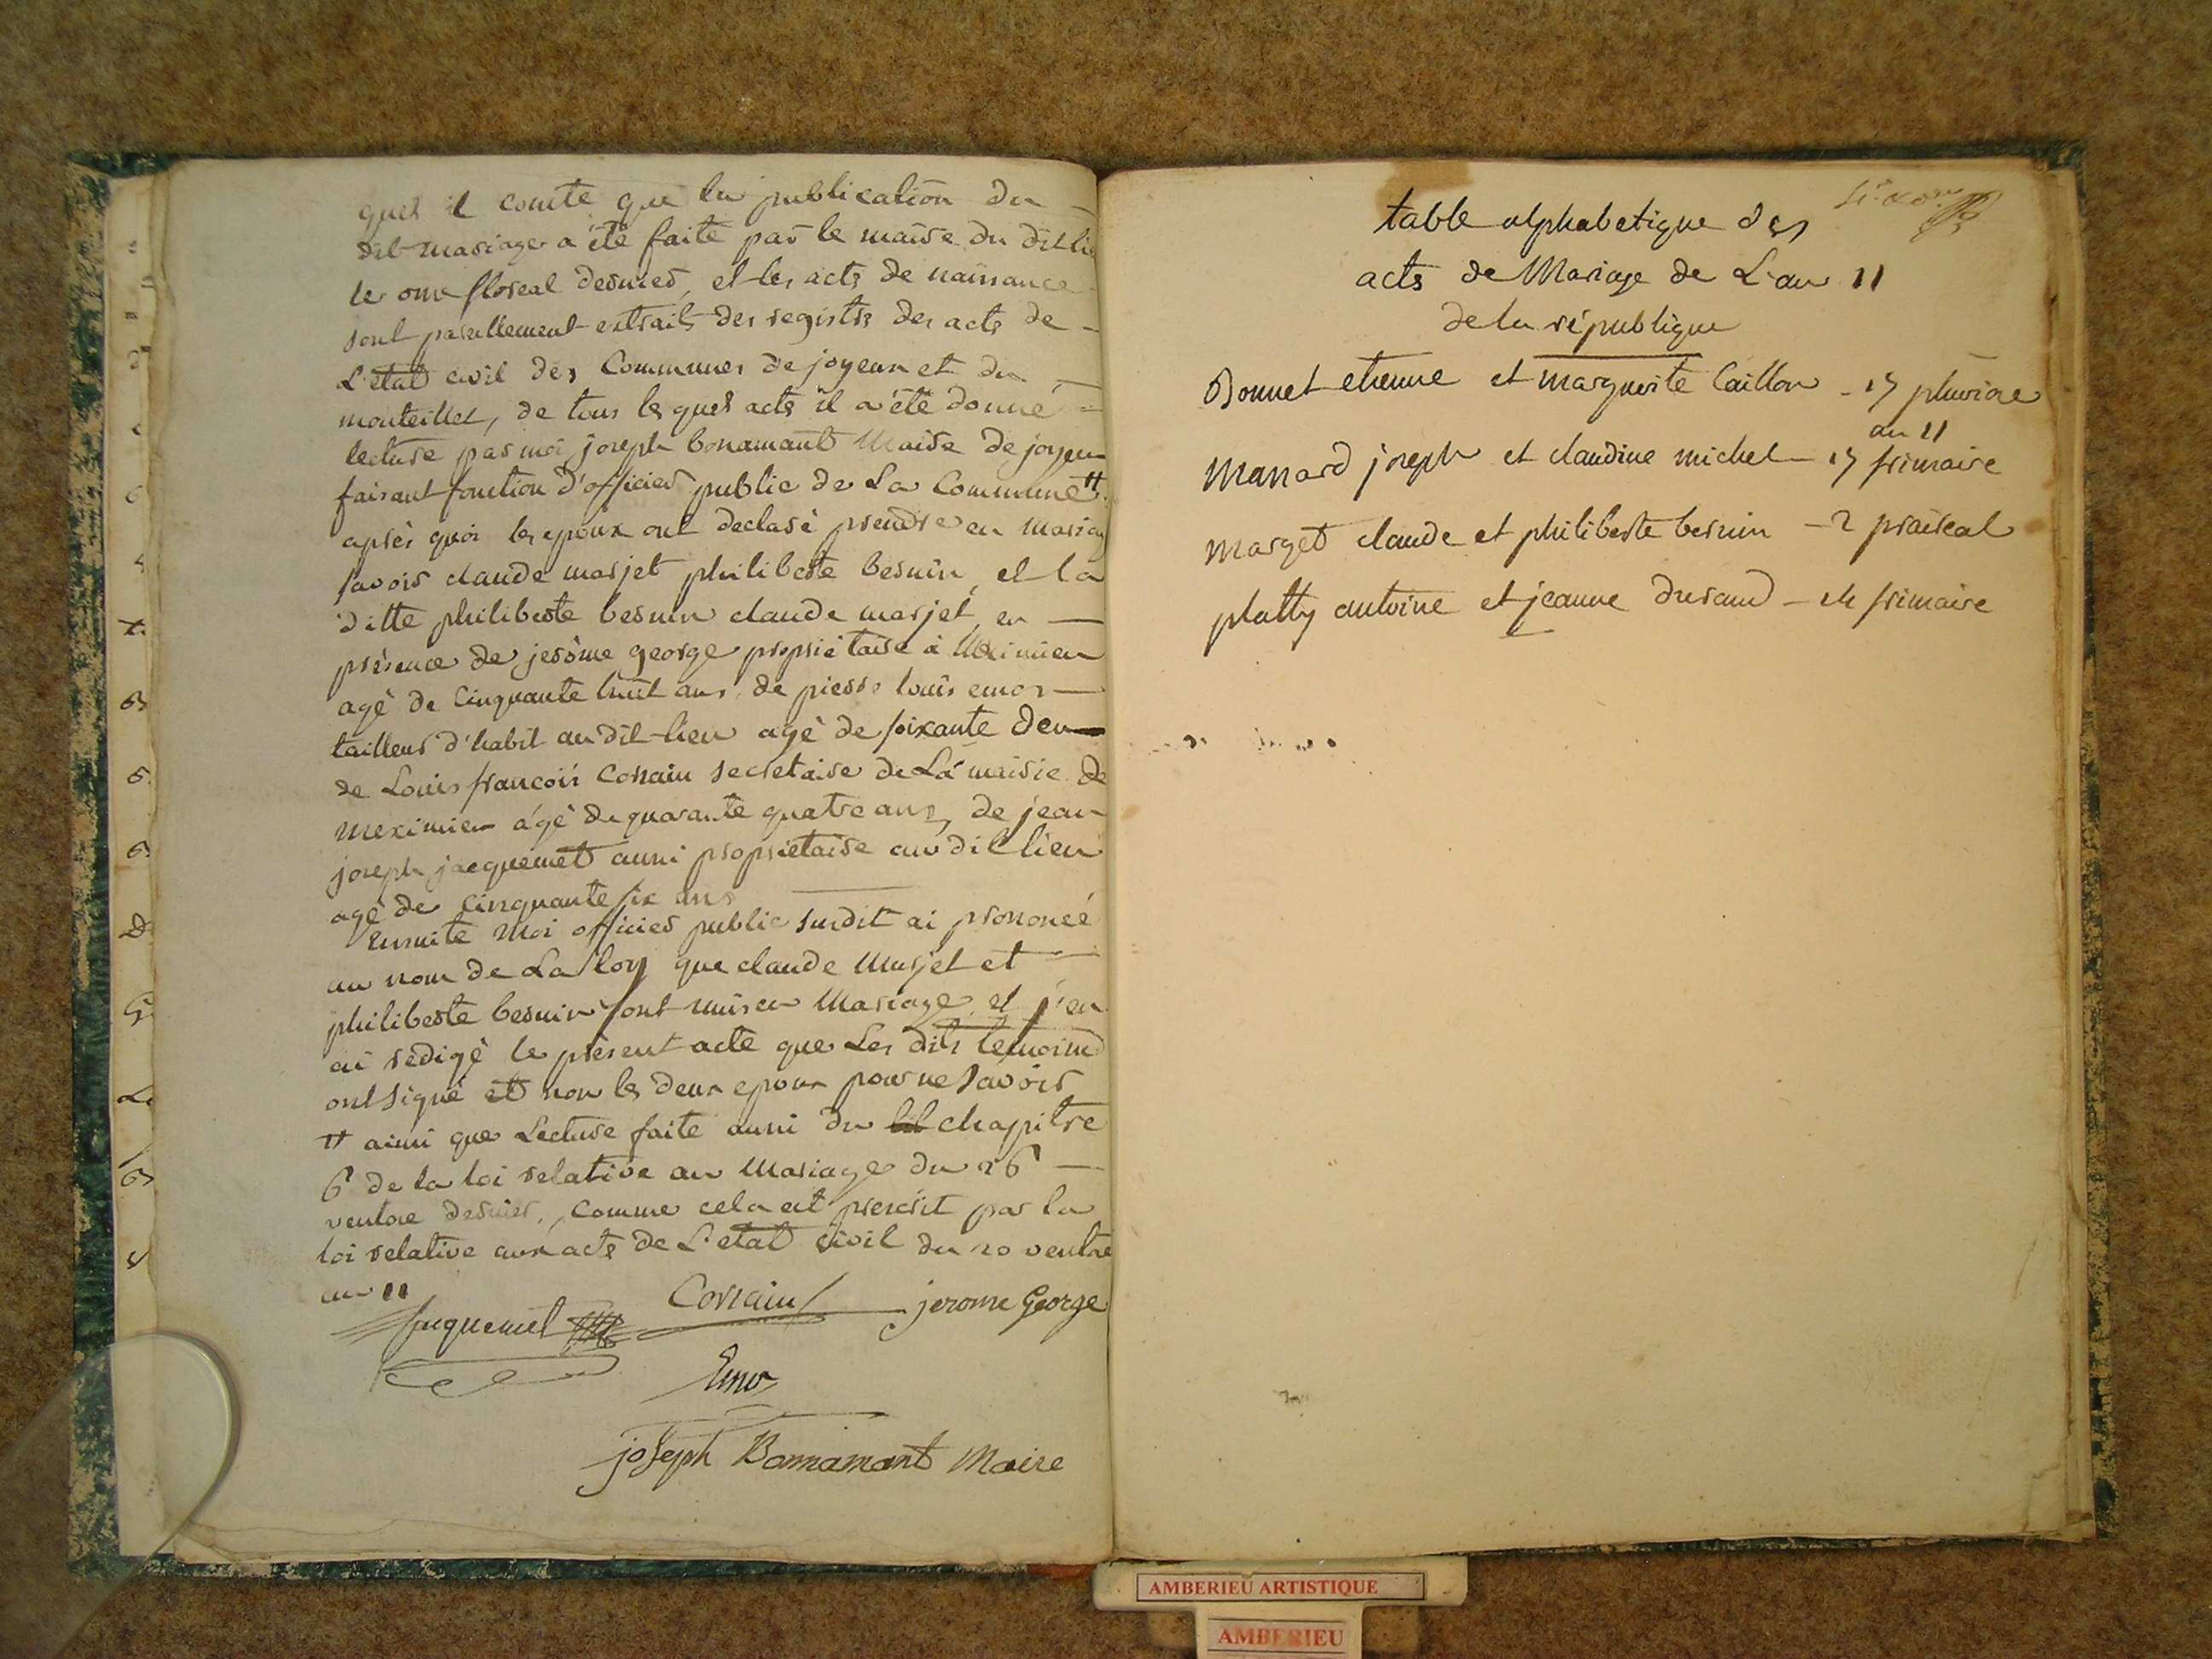 quel il conste que la publication du
dit mariage a été faite par le maire du dit lieu
le onze floreal dernier, et les acts de naissance
sont pareillement extraits des registrs des acts de
L'état civil des Communes de joyeux et du
montellier, de tous lesquels acts il a été donné
lecture par moi joseph bonamant Maire de joyeux
faisant fonction d'officier public de La Commune #
après quoi les epoux ont declaré prendre en mariage
savoir claude marjet philiberte bernin, et la
ditte philiberte bernin claude marjet, en
présence de jerôme george propriétaire à Meximieu
agé de cinquante huit ans, de pierre louis emor
tailleur d'habit au dit lieu agé de soixante deux
de Louis francois Corsain secretaire de La mairie de
meximieu agé de quarante quatre ans, de jean
joseph jacquemet aussi propriétaire au dit lieu
agé de cinquante six ans
Ensuite Moi officier public susdit ai prononcé
au nom de La loy que claude Marjet et
philiberte bernin sont unis en Mariage, et j'en
ai redigé le présent acte que Les dits temoins
ont signé et non les deux epoux pour ne savoir
# ainsi que Lecture faite aussi du chapitre
6 de la loi relative au Mariage du 26
ventose dernier, comme cela est prescrit par la
loi relative aux acts de L'etat civil du 20 ventose
an 11
Jacquemet Corsain jerome George
Emor
joseph Bonnamant Maire
table alphabetique des
acts de Mariage de L'an 11
de la république
Bonnet etienne et marguerite Caillon - 17 pluviose
an 11
Massard joseph et claudine michel - 17 frimaire
marget claude et philiberte bernin - 2 prairéal
platty antoine et jeanne durand - 24 frimaire
AMBERIEU ARTISTIQUE
AMBERIEU